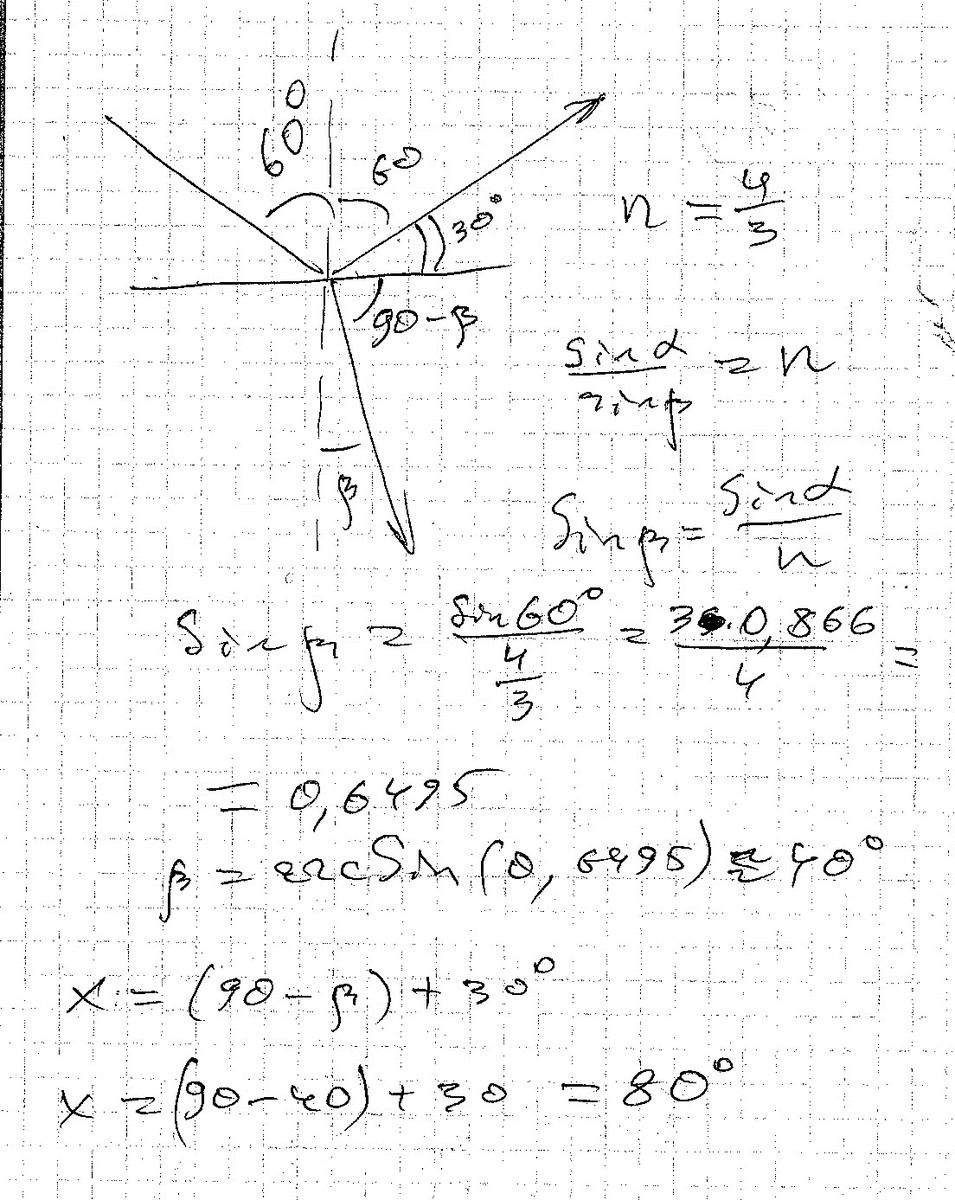 60°
60
30°
n = 4/3
90-β
sinα/sinβ = n
β
Sinβ = Sinα/n
Sinβ = Sin60°/(4/3) = 3·0,866/4 =
= 0,6495
β = arcSin(0,6495) ≈ 40°
x = (90-β) + 30°
x = (90-40) + 30 = 80°